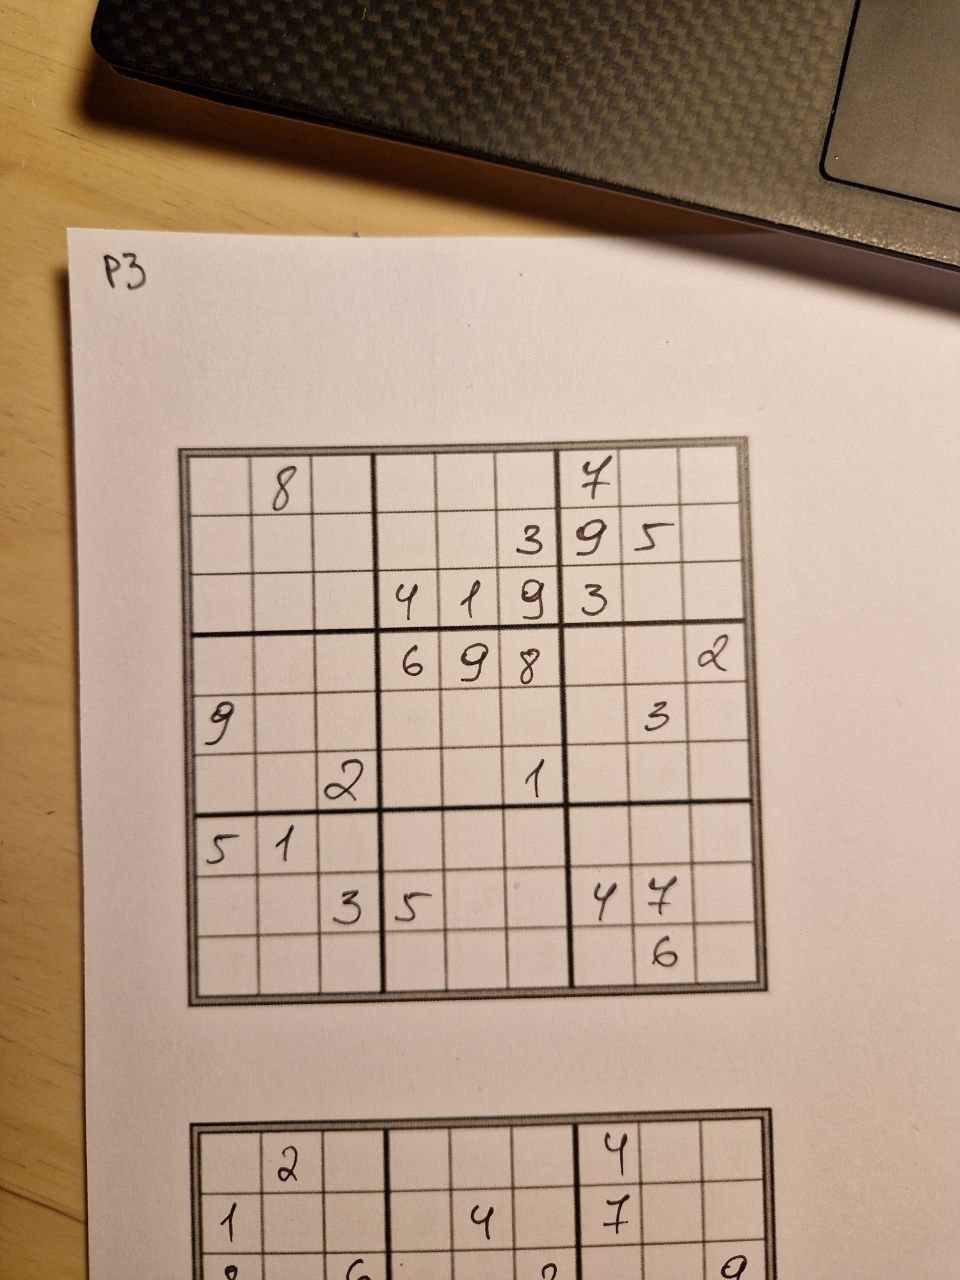 P3
8 7
3 9 5
4 1 9 3
6 9 8 2
9 3
2 1
5 1
3 5 4 7
6
2 4
1 4 7
9